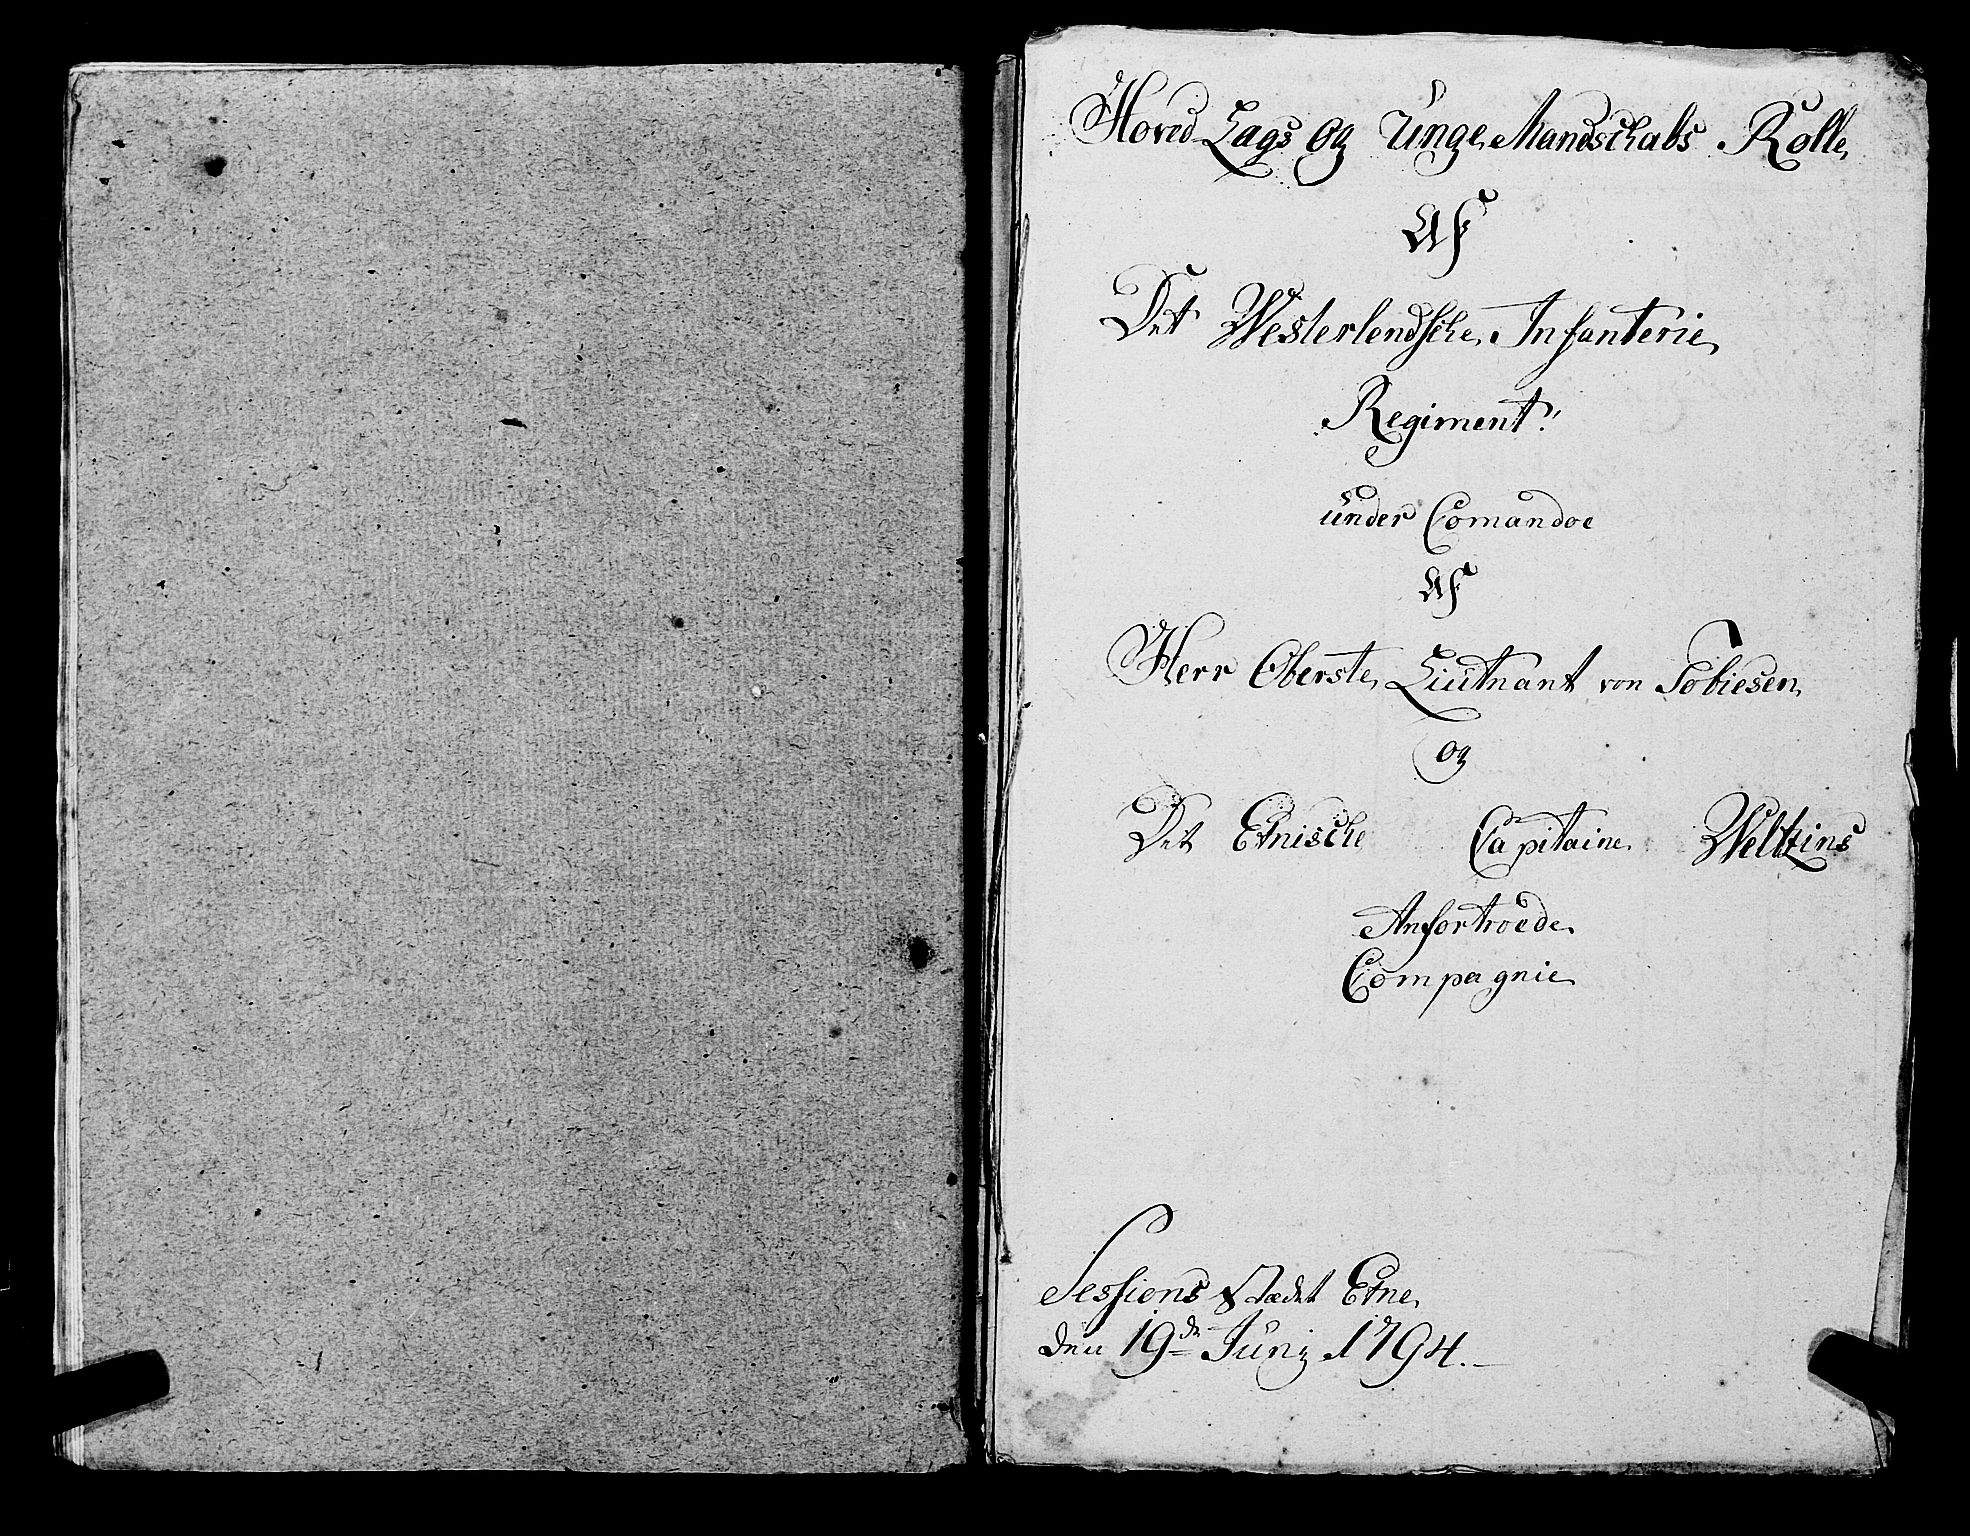 Hoved Lags Og Unge Mandschabs Rolle
Af
Det Westerlendsche Infanterie
Regiment
under Comandoe
Af
Herr Oberste Liutnant von Tobiesen
og
Det Etnische Capitaine Weltzins
Anfortroede
Compagnie
Sessions Stædet Etne
den 19de Junÿ 1794.